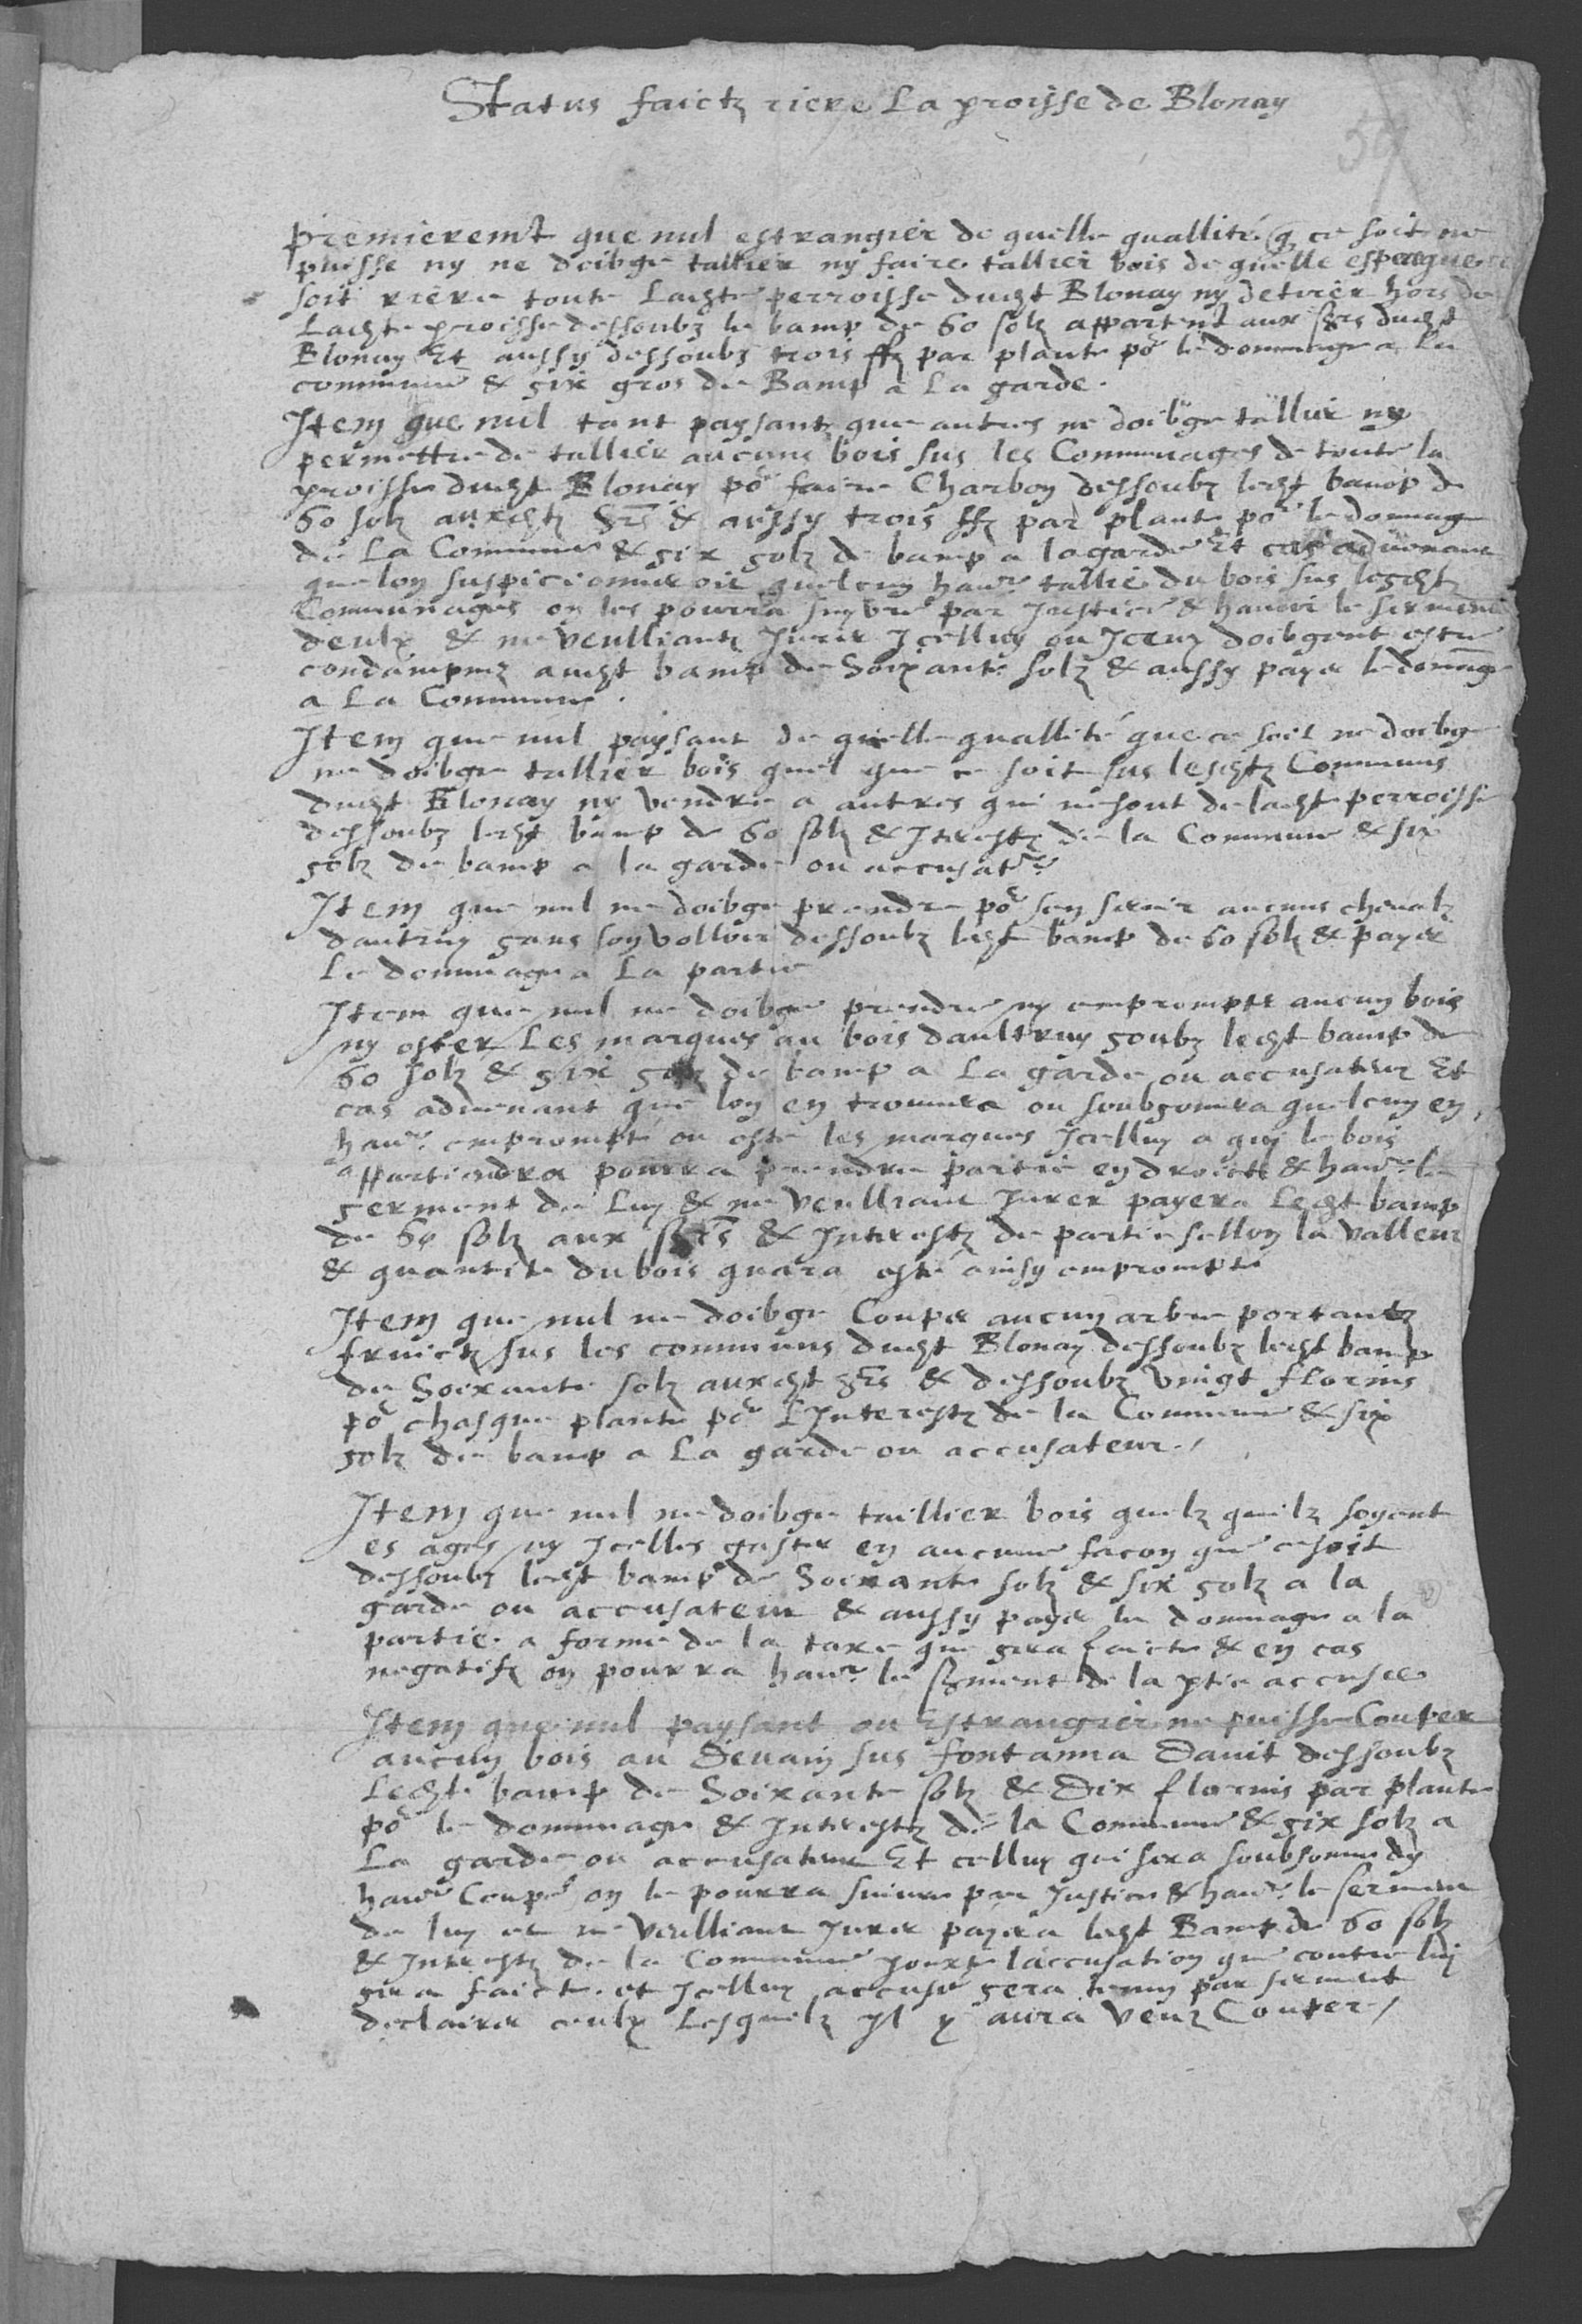 Status faictz riere La proisse de Blonay
premieremt que nul estrangier de quelle quallité q ce soit ne
puisse ny ne doibge tallier ny faire tallier bois de quelle espece que ce
soit riere toute Ladte perroisse dudt Blonay ny detirer hors de
Ladte proisse dessoubz le bamp de 60 solz appartent aux srs dudt
Blonay Et aussy dessoubz trois ff par plante po le dommage a la
commune & six gros de Bamp a La garde.
Item que nul tant paysantz que autres ne doibge tallier ny
permettre de tallier aucuns bois sus les Communages de toute la
proisse dudt Blonay po faire Charbon dessoubz ledt bamp de
60 solz auxdtz srs & aussy trois ff par plante po le domage
de La Commune & six solz de bamp a la garde Et cas advenant
que lon suspicionneroit quelcun havr tallié du bois sus lesdtz
Communages on les pourra suyvre par Justice & havoir le serment
deulx & ne veulliantz Jurer Jcelluy ou Jceux doibgent estre
condampnez audt bamp de Soixante solz & aussy payer le domage
a La Commune.
Item que nul paysant de quelle quallité que ce soit ne doibge
ne doibge tallier bois quel que ce soit sus lesdtz Communs
dudt Blonay ny vendre a autres qui ne sont de ladte perroisse
dessoubz ledt bamp de 60 solz & Jterestz de la Commune & six
solz de bamp a la garde ou accusatr
Item que nul ne doibge prendre po son servir aucuns chevalz
dautruy sans son volloir dessoubz ledt bamp de 60 solz & payer
Le dommage a La partie
Item que nul ne doibge prendre ny emprompter aucun bois
ny oster Les marques au bois daultruy soubz ledt bamp de
60 solz & six solz de bamp a La garde ou accusateur Et
cas advenant que lon en trouvera ou soubsonnera quelcun en
havr emprompté ou osté les marques Jcelluy a qui le bois
appartiendra pourra prendre partie en droict & havr le
serment de Luy & ne veulliant Jurer payera Ledt bamp
de 60 solz aux srs & Jnterestz de partie sellon la valleur
& quantite du bois quara esté ainsy emprompté
Item que nul ne doibge Couper aucun arbre portantz
fruictz sus les communs dudt Blonay dessoubz ledt bamp
de Soixante solz auxdt srs & dessoubz vingt florins
po chasque plante po LJnterestz de la Commune & six
solz de bamp a La garde ou accusateur./
Item que nul ne doibge taillier bois quelz quilz soyent
es ages ny Jcelles gaster en aucune facon que ce soit
dessoubz ledt bamp de Soixante solz & six solz a la
garde ou accusateur & aussy payer le dommage a la
partie a forme de la taxe que sera faicte & en cas
negatif on pourra havr le serment de la ptie accusee
Item que nul paysant ou Estrangier ne puisse Couper
aucun bois au Devain sus fontanna Davit dessoubz
Ledt bamp de Soixante solz & Dix florins par plante
po le dommage & Jnterestz de la Commune & six solz a
La garde ou accusateur Et celluy qui sera soubsonné dy
havr Coupé on le pourra suivre par Justice & havr le serment
de luy et ne veulliant Jurer payera ledt Bamp de 60 solz
& Jnterestz de la Commune jouxte laccusation que contre luy
sera faicte. et Jcelluy accusé sera tenu par serment
declairer ceulx Lesquelz Jl y aura veuz Couper./